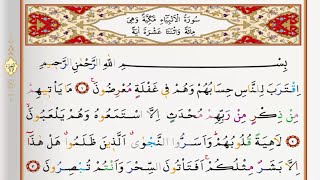 سُورَةُ الْاَنْبِيَٓاءِ مَكِّيَّةٌ وَهِيَ
مِائَةٌ وَاثْنَتَا عَشْرَةَ اٰيَةً
بِسْــــــمِ اللّٰهِ الرَّحْمٰنِ الرَّحٖيمِ
اِقْتَرَبَ لِلنَّاسِ حِسَابُهُمْ وَهُمْ فٖي غَفْلَةٍ مُعْرِضُونَۚ ۝ مَا يَأْتٖيهِمْ
مِنْ ذِكْرٍ مِنْ رَبِّهِمْ مُحْدَثٍ اِلَّا اسْتَمَعُوهُ وَهُمْ يَلْعَبُونَۙ ۝
لَاهِيَةً قُلُوبُهُمْۜ وَاَسَرُّوا النَّجْوٰىۗ اَلَّذٖينَ ظَلَمُواۗ هَلْ هٰذَٓا
اِلَّا بَشَرٌ مِثْلُكُمْۚ اَفَتَأْتُونَ السِّحْرَ وَاَنْتُمْ تُبْصِرُونَ ۝